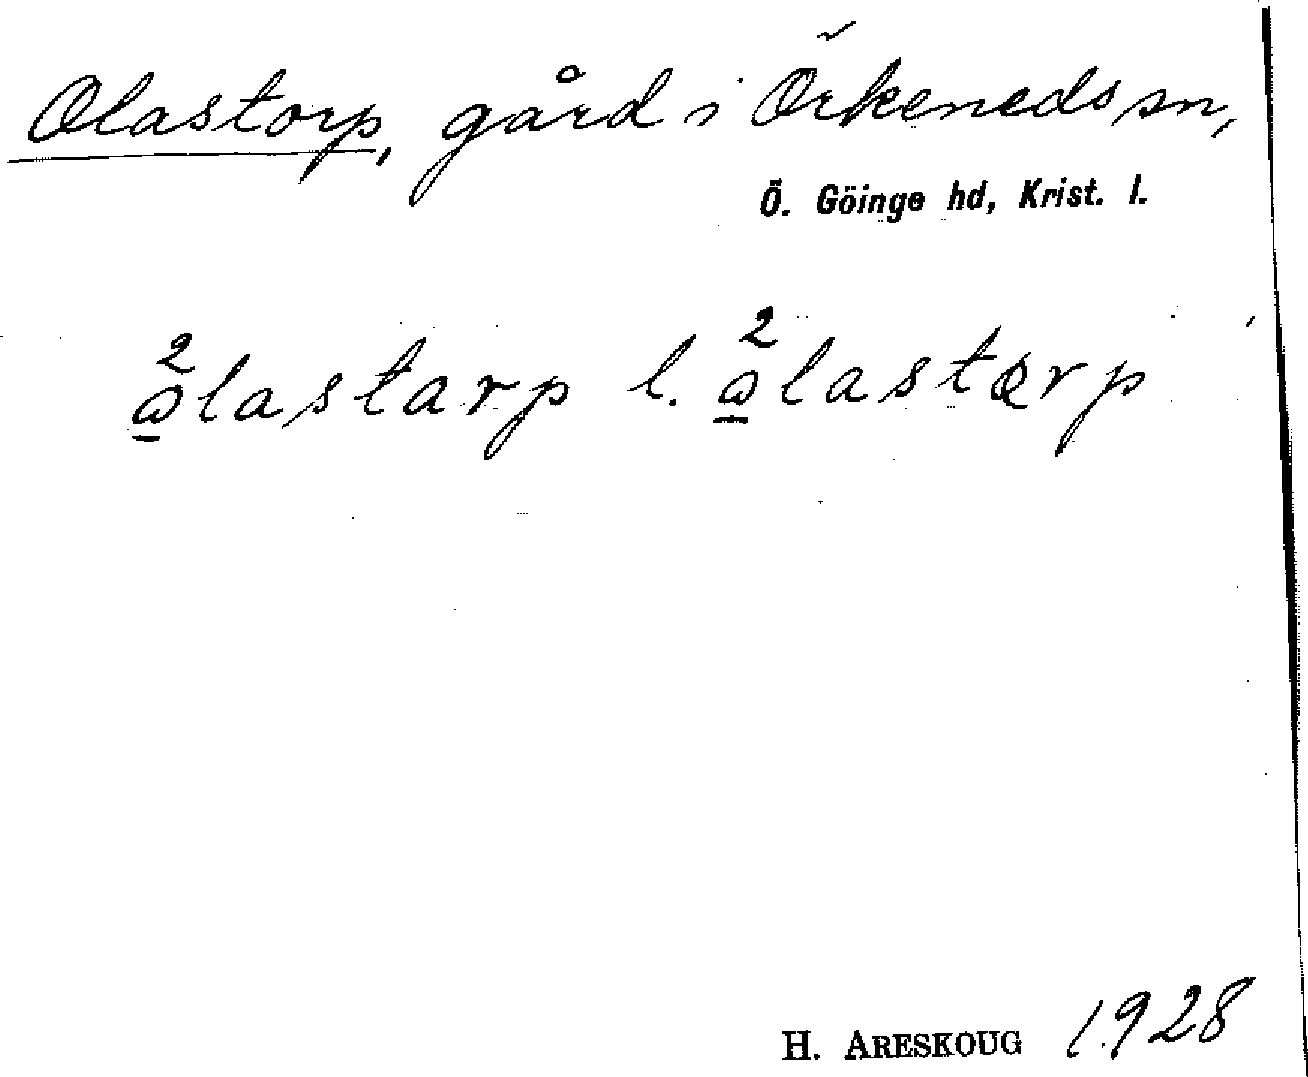 Olastorp, gård i Örkeneds sn,
Ö. Göinge hd, Krist. l.
²ω̲lastarp l. ²ω̲lastərp
H. ARESKOUG 1928